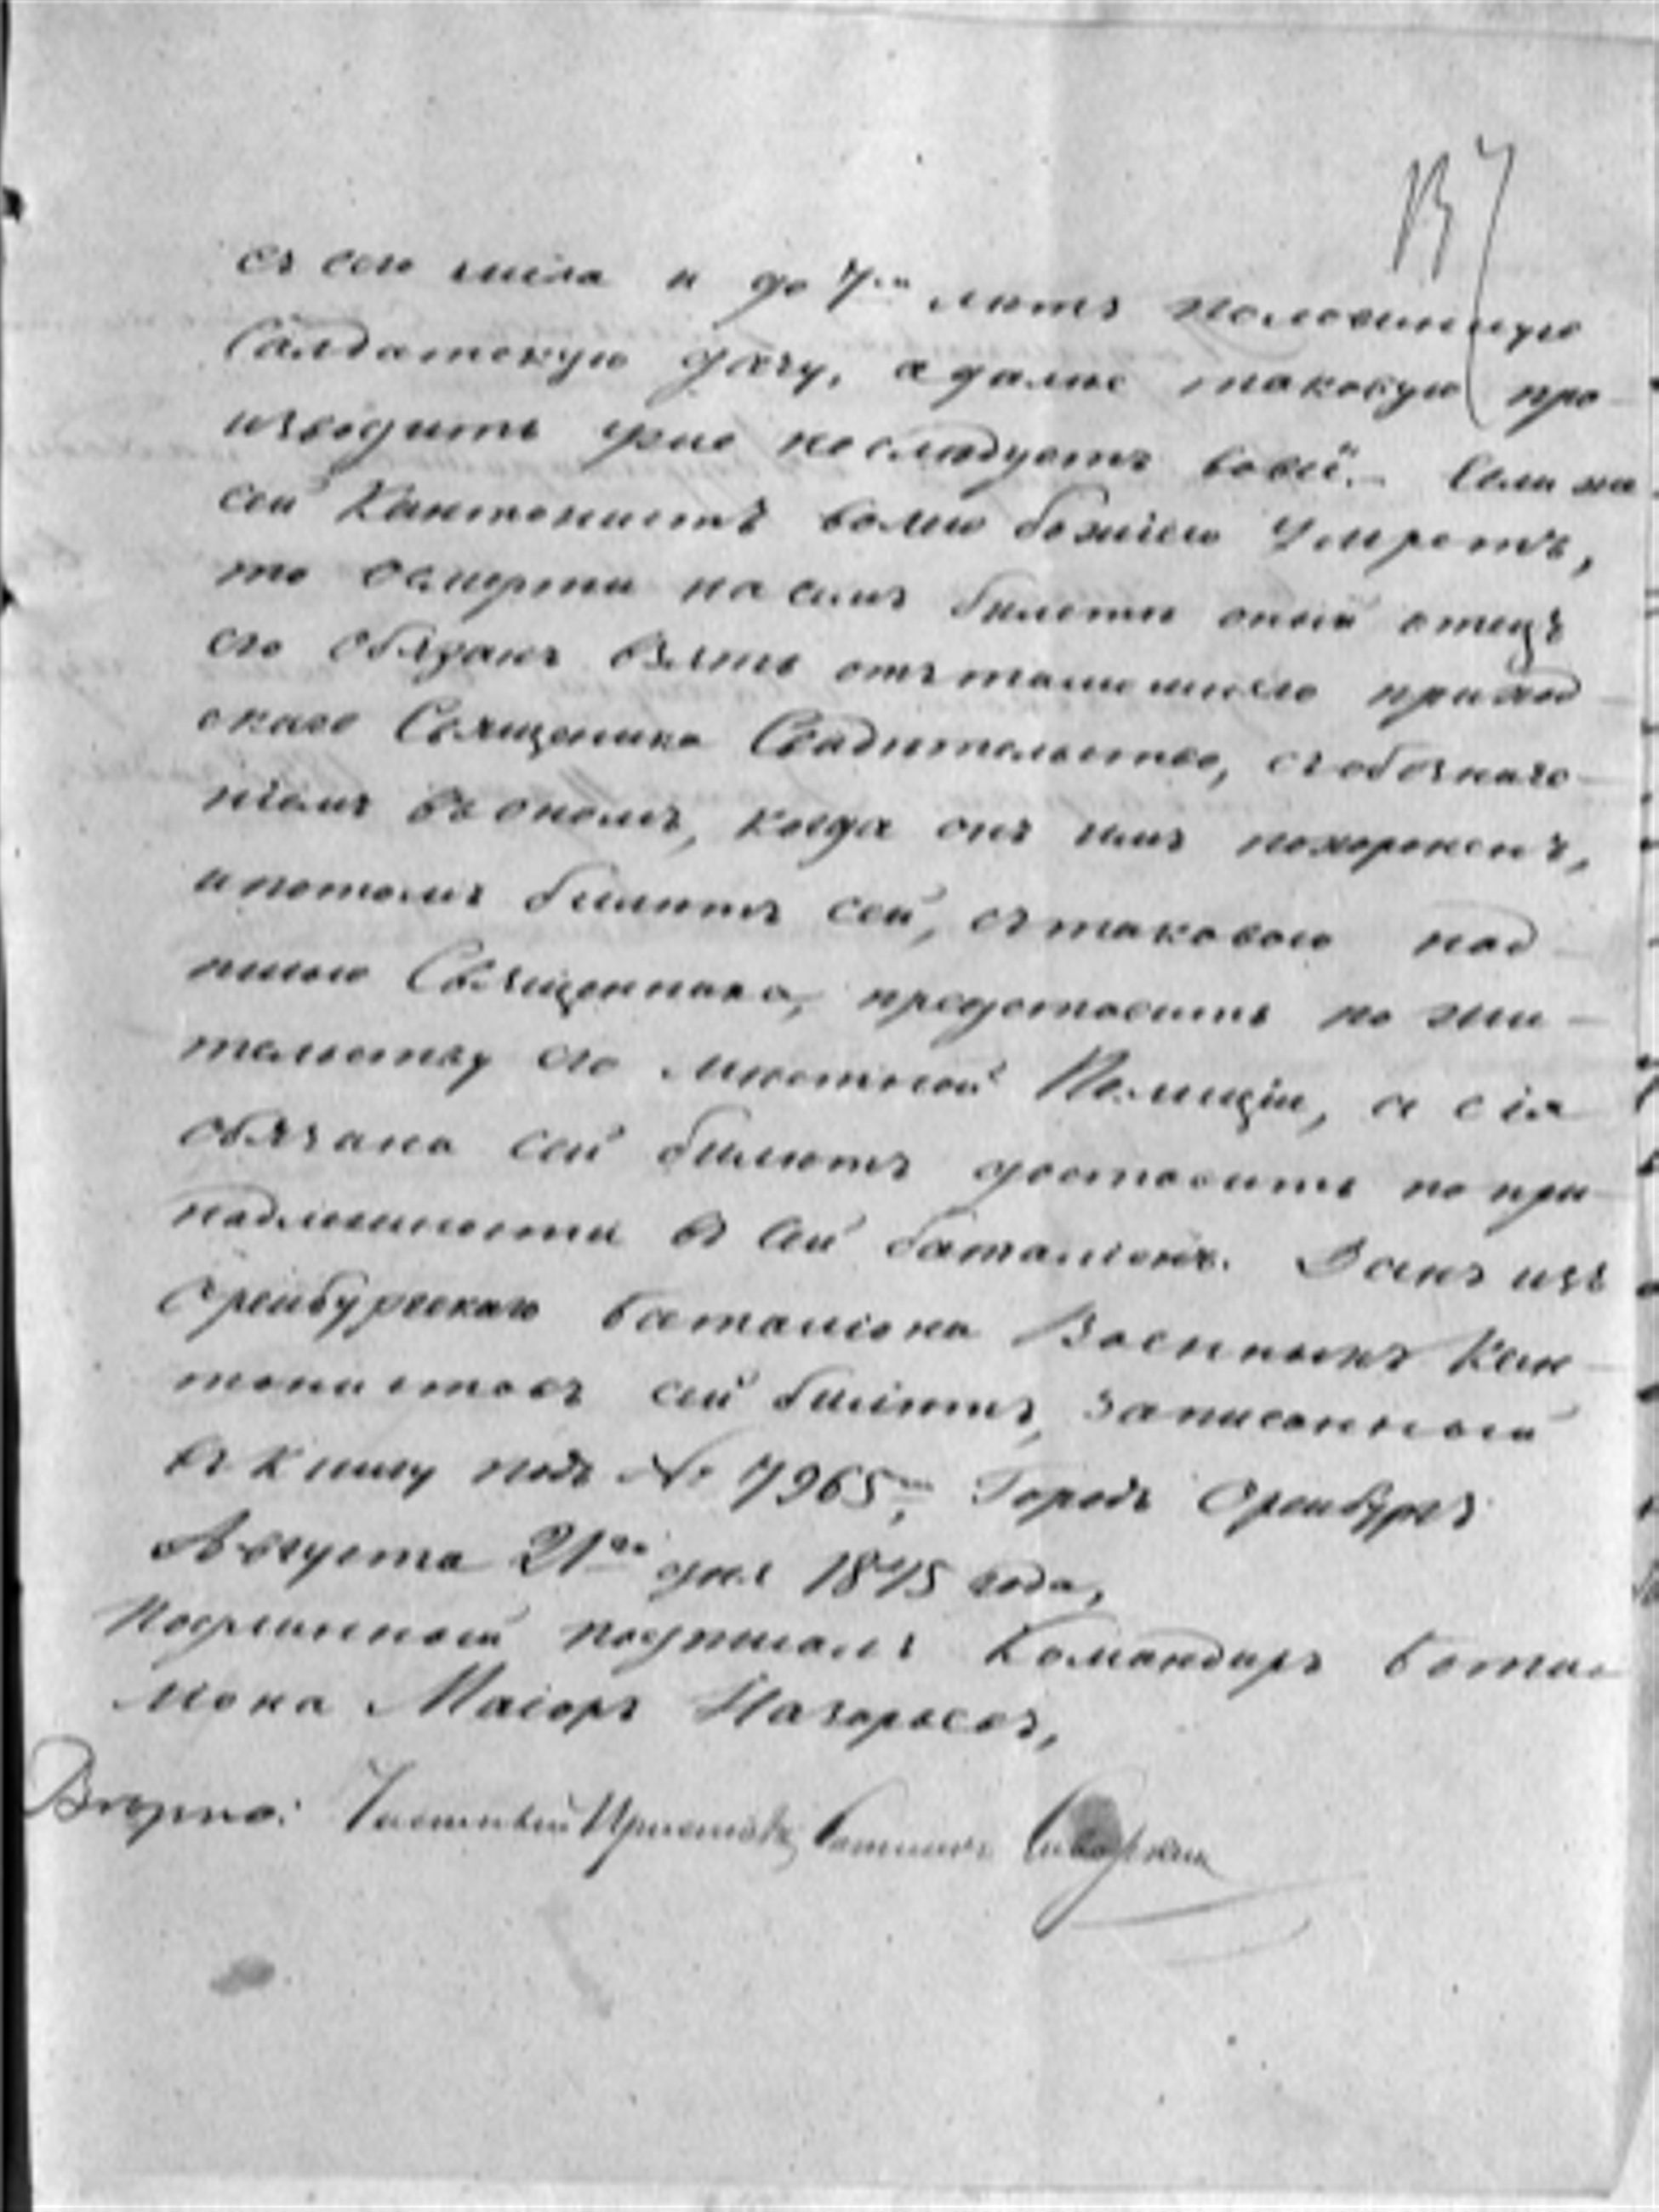 137
съ сего числа и до 7ми летъ половинную
Солдатскую дачу, а далее таковую про
изводить уже не следуетъ вовсе.- Если же
сей Кантонистъ волею божіею Умретъ,
то о смерти на семъ билете оный отецъ
его обязанъ взять отъ тамошняго приход
скаго Священика Свидетельство, съ обозначе
ніемъ въ ономъ, когда онъ имъ похороненъ,
и потомъ билетъ сей, съ таковою над
писью Священника, предоставить по жи
тельству его местной Полиціи, а сія
обязана сей билетъ доставить по при
надлежности въ сей баталіонъ. Данъ изъ
Оренбургскаго баталіона Военныхъ Кан
тонистовъ сей билетъ, записанный
въ книгу подъ № 7965м, Городъ Оренбургъ
Августа 21го дня 1845 года,
Подлинный подписалъ Командиръ батал
ліона Маіоръ
Верно: Частный Приставъ